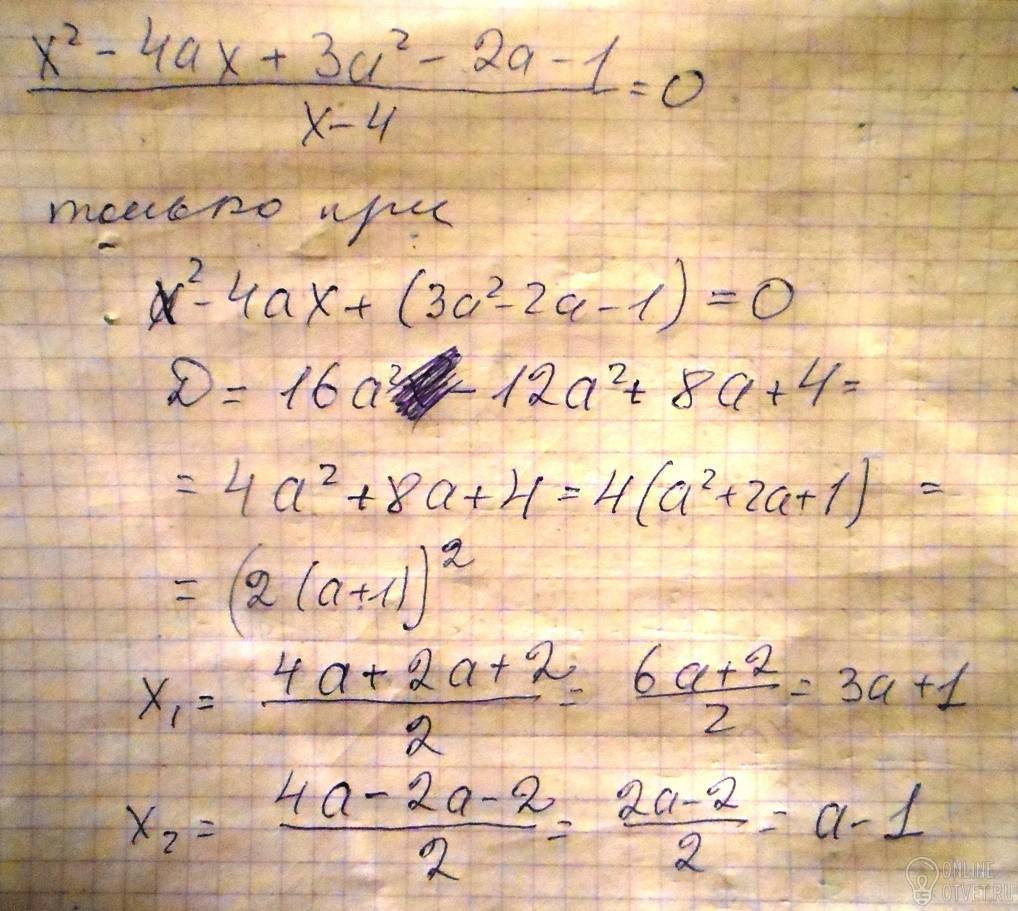 x² - 4ax + 3a² - 2a - 1
x - 4
= 0
только при
x² - 4ax + (3a² - 2a - 1) = 0
D = 16a² - 12a² + 8a + 4 =
= 4a² + 8a + 4 = 4(a² + 2a + 1) =
= (2(a+1))²
x₁ = (4a + 2a + 2)/2 = (6a + 2)/2 = 3a + 1
x₂ = (4a - 2a - 2)/2 = (2a - 2)/2 = a - 1
ONLINE
OTVET.RU